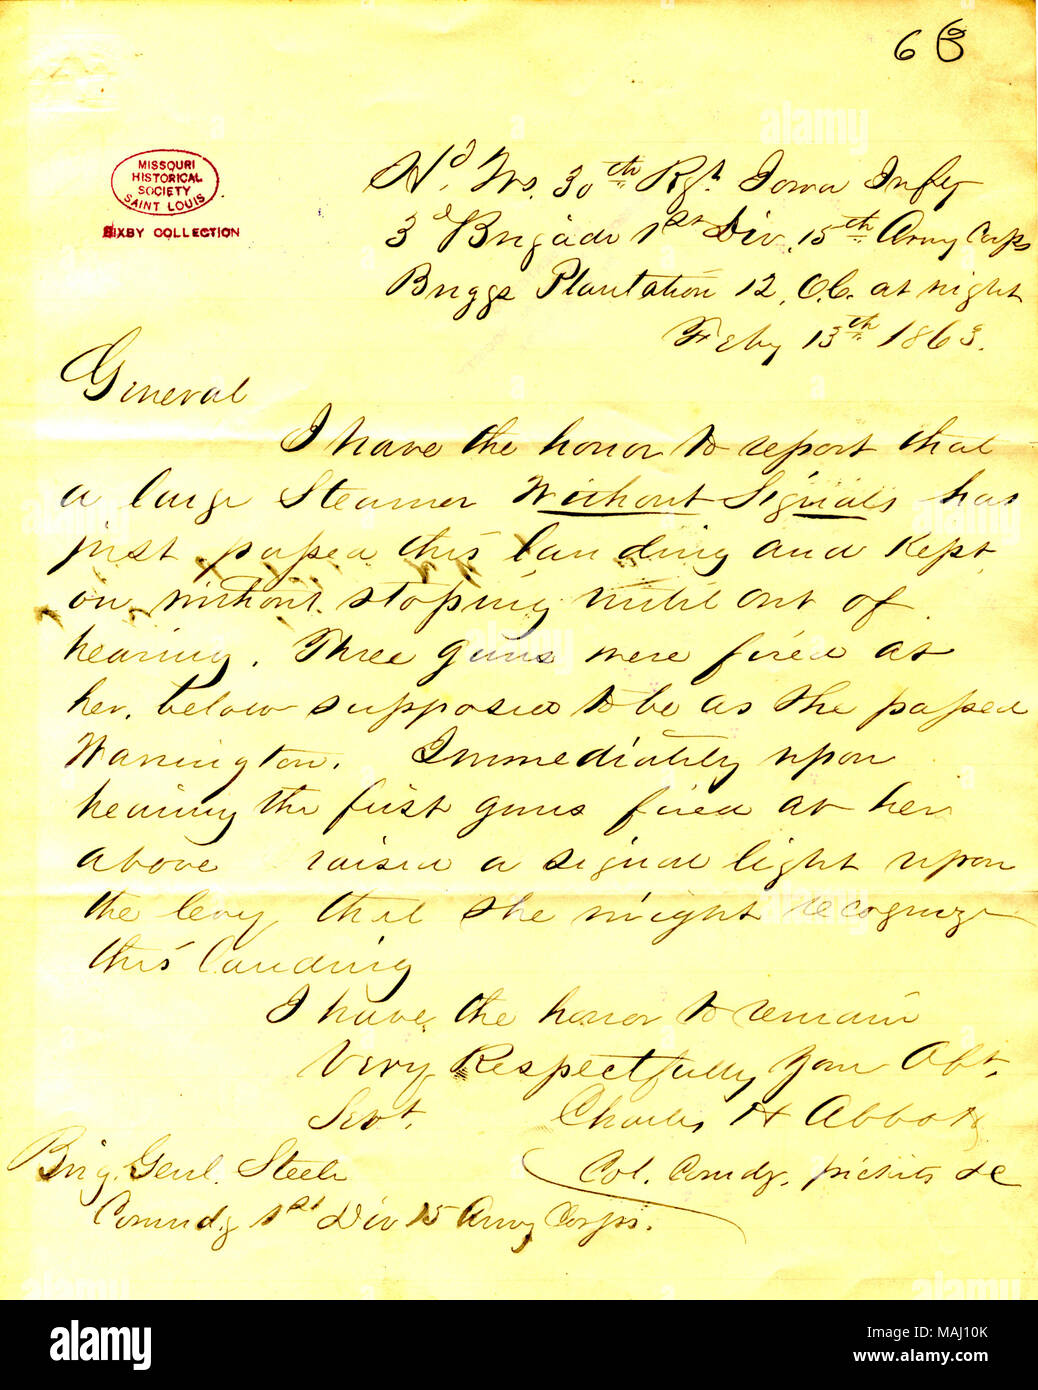 6 6
MISSOURI
HISTORICAL
SOCIETY
SAINT LOUIS
BIXBY COLLECTION
Hd. Qrs. 30th Rgt. Iowa Infty
3d Brigade 1st Div. 15th Army Corps
Briggs Plantation 12, O.C. at night
Feby 13th 1863.
General
I have the honor to report that
a large Steamer Without Signals has
just passed this landing and Kept
on without stoping until out of
hearing. Three guns were fired at
her, below supposed to be as she passed
Warrington. Immediately upon
hearing the first guns fired at her
above raised a signal light upon
the levy that she might recognize
this landing
I have the honor to remain
Very Respectfully Your Obt.
Servt. Charles H Abbott
Brig. Genl. Steele Col. Comdg. pickets &C
Commdg 1st Div 15 Army Corps.
alamy
Image ID: MAJ10K
www.alamy.com